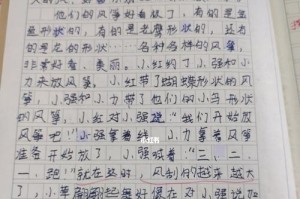 他们的风筝好看极了，有的是金
鱼形状的，有的是老鹰形状的，还
有的是龙的形状……各种各样的风筝，
非常好看、美丽。小红约了小强和小
力来放风筝，小红带了蝴蝶形状的风
筝，小强和小力带了他们的小鸟形状
的风筝，小红对小强说"我们开始放
风筝吧！"小强拿着线，小力拿着风筝
准备开始放了，小强喊着"三、二、
一，跑！"就在这时，风筝越来越大
了，小草翩翩起舞好像在对小强说加
小红书